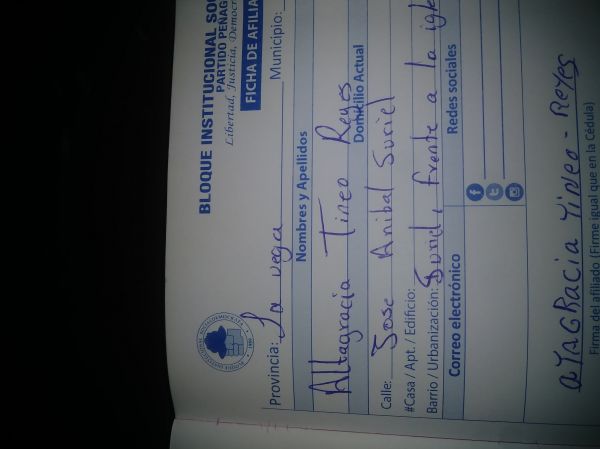 BLOQUE INSTITUCIONAL SO
PARTIDO PEÑAG
Libertad, Justicia, Democr
FICHA DE AFILIA
Provincia: La vega Municipio:
Nombres y Apellidos
Altagracia Tineo Reyes
Domicilio Actual
Calle: Jose Anibal Suriel
#Casa / Apt. / Edificio:
Barrio / Urbanización: Suriel, frente a la igl
Correo electrónico Redes sociales
aTAGRacia TiNeo - Reyes
Firma del afiliado (Firme igual que en la Cédula)